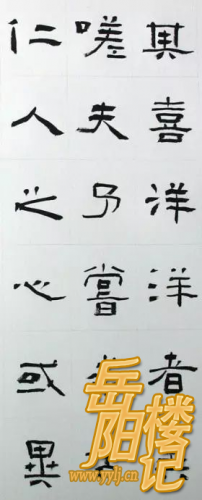 其喜洋洋者
嗟夫予嘗
仁人之心或異
岳阳楼记
www.yylj.cn